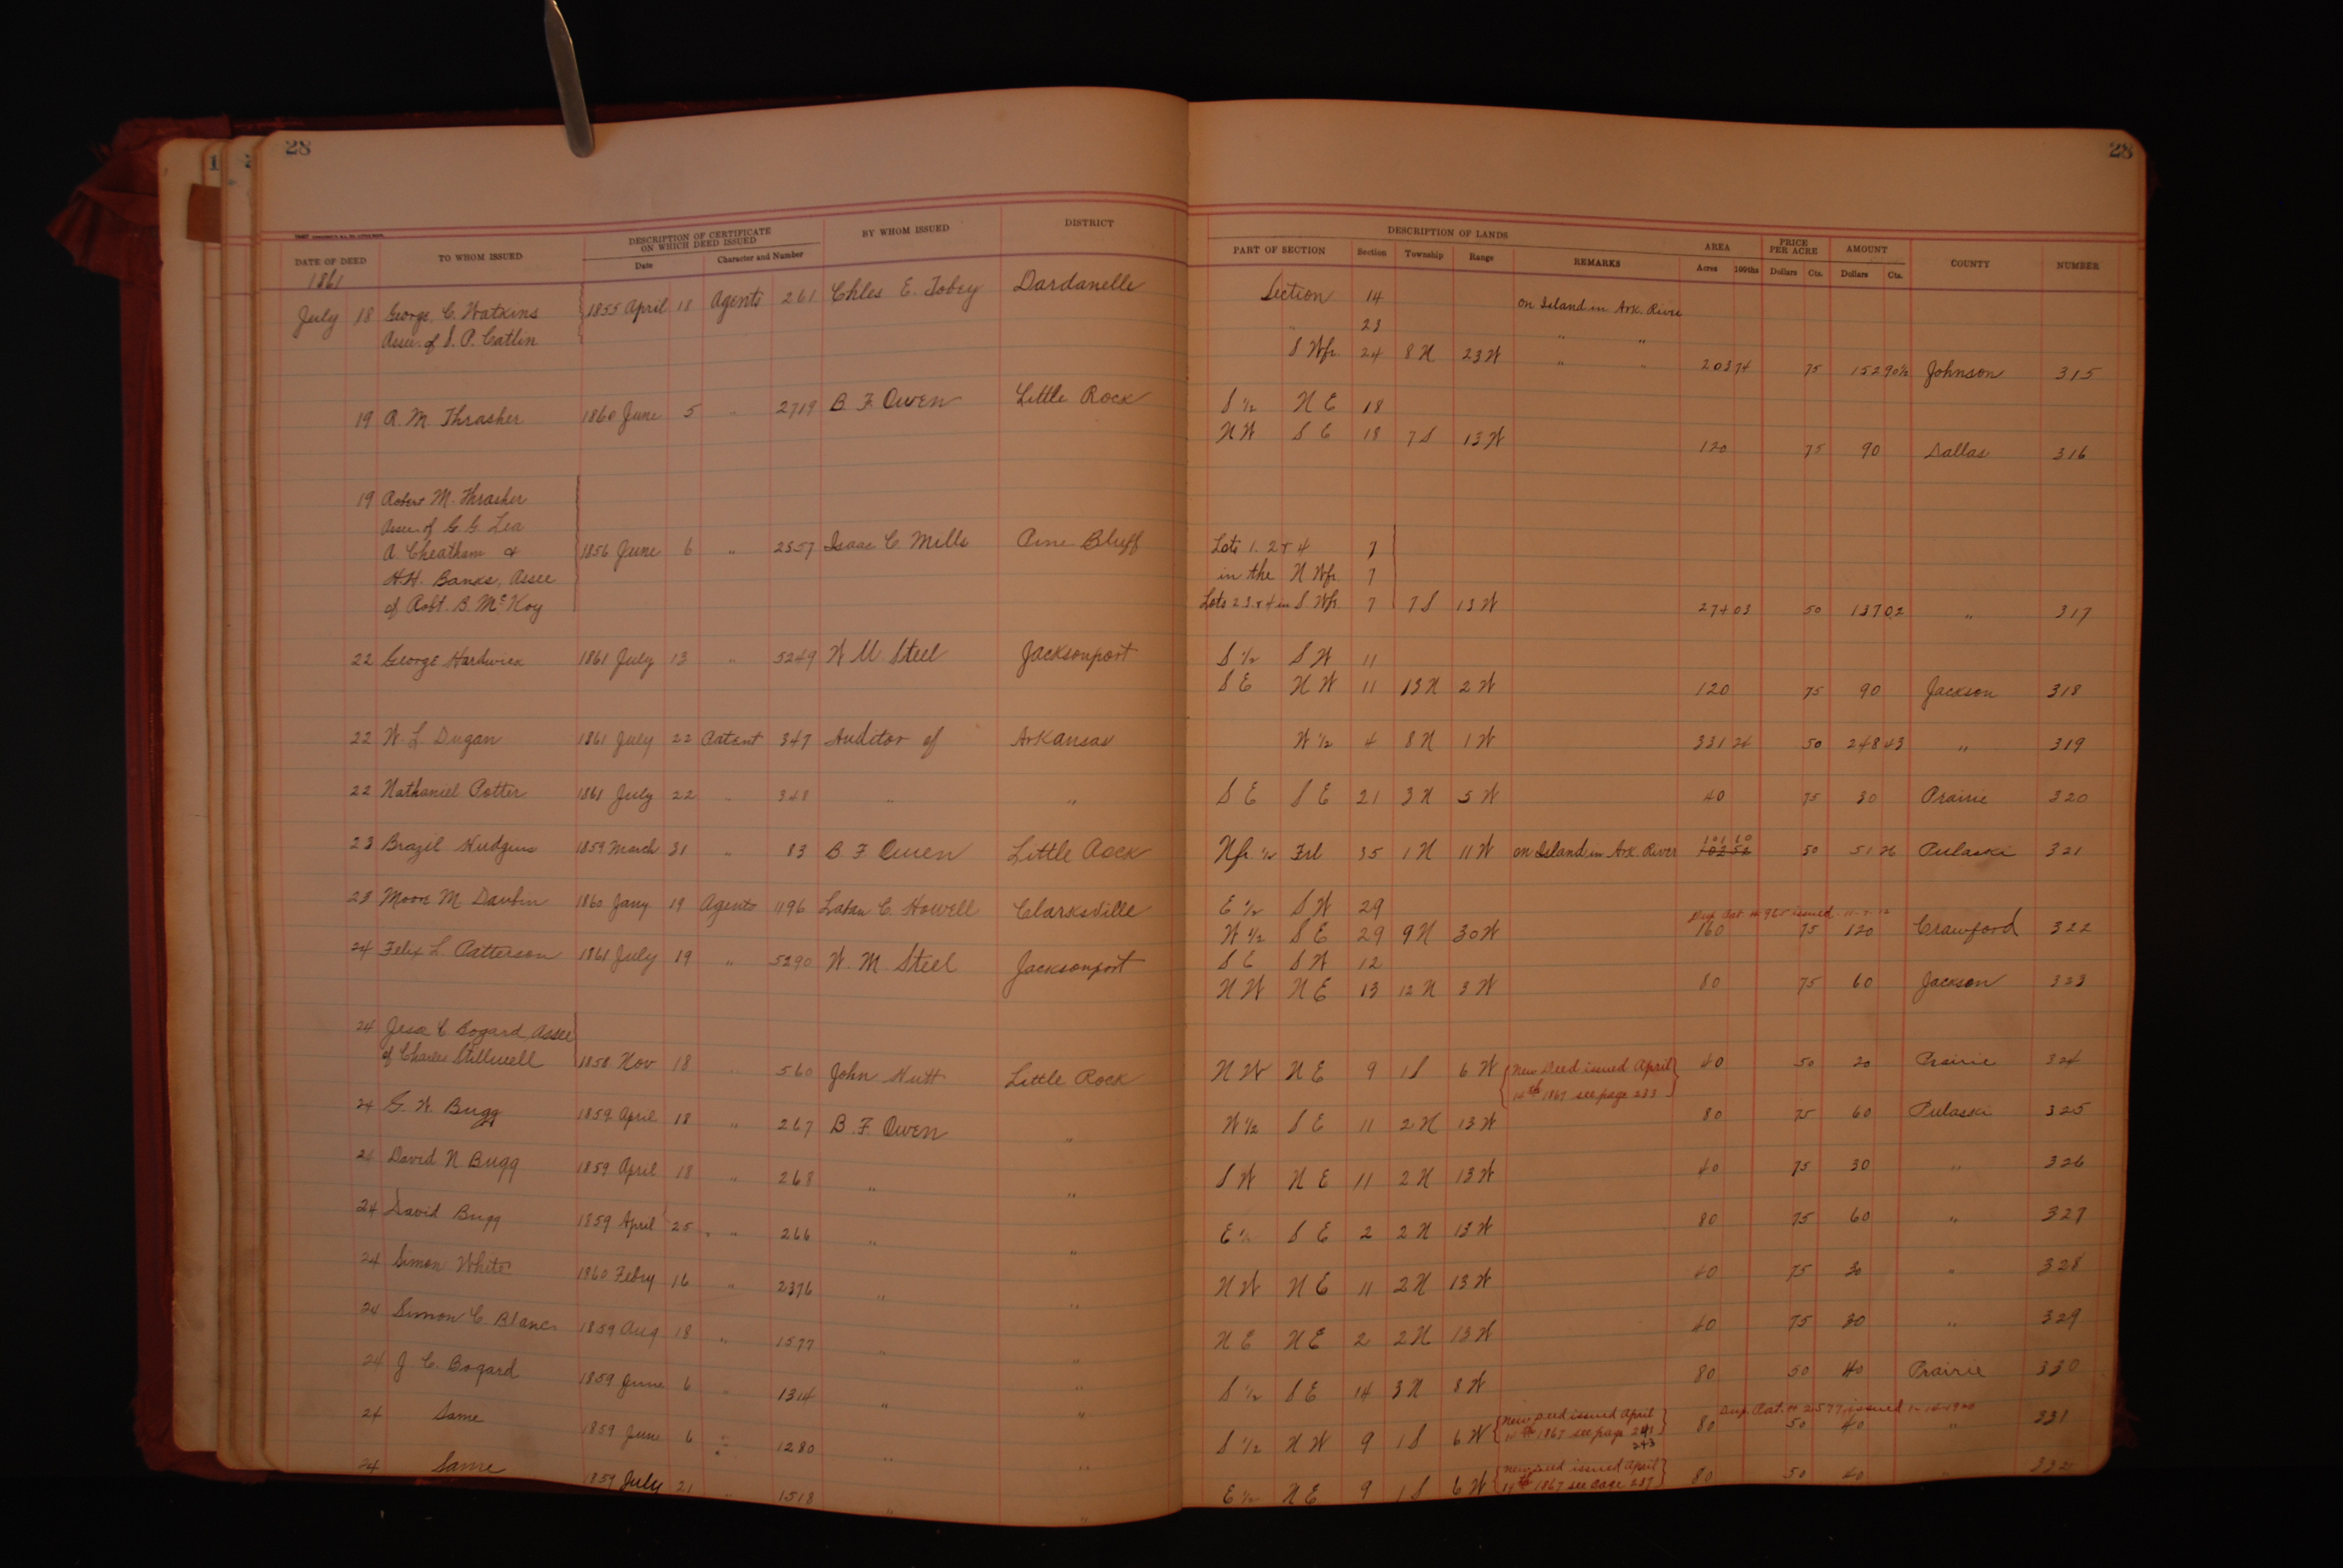 28
28
DATE OF DEED TO WHOM ISSUED DESCRIPTION OF CERTIFICATE ON WHICH DEED ISSUED Date Character and Number BY WHOM ISSUED DISTRICT
DESCRIPTION OF LANDS PART OF SECTION Section Township Range REMARKS AREA Acres 100ths PRICE PER ACRE Dollars Cts. AMOUNT Dollars Cts. COUNTY NUMBER
1861
July 18 George C. Watkins 1855 April 18 Agents 261 Chles E. Tobey Dardanelle Section 14 on Island in Ark. River
Assee. of S. P. Catlin " 23 " "
S Wfr. 24 8 N 23 W " " 203 74 75 152 90½ Johnson 315
19 A. M. Thrasher 1860 June 5 " 2719 B. F. Owen Little Rock S ½ N E 18
N W S E 18 7 S 13 W 120 75 90 Dallas 316
19 Robert M. Thrasher
Assee of G. G. Lea
A. Cheatham & 1856 June 6 " 2357 Isaac C. Mills Pine Bluff Lots 1. 2 & 4 7
H. H. Banks, Assee in the N Wfr. 7
of Robt. B. McKoy Lots 2 3 & 4 in S Wfr. 7 7 S 13 W 274 03 50 137 02 " 317
22 George Hardwick 1861 July 13 " 5249 W M. Steel Jacksonport S ½ S W 11
S E N W 11 13 N 2 W 120 75 90 Jackson 318
22 W. L. Dugan 1861 July 22 Patent 347 Auditor of Arkansas W ½ 4 8 N 1 W 331 24 50 248 43 " 319
22 Nathaniel Potter 1861 July 22 " 348 " " S E S E 21 3 N 5 W 40 75 30 Prairie 320
23 Brazil Hudgins 1859 March 31 " 83 B F Owen Little Rock Nfr. ½ Frl 35 1 N 11 W on Island in Ark. River 101 10 102 52 50 51 26 Pulaski 321
23 Moore M 1860 Jany 19 Agents 1196 C. Howell Clarksville E ½ S W 29
W ½ S E 29 9 N 30 W 160 75 120 Crawford 322
24 Felix L. Patterson 1861 July 19 " 5290 W. M Steel Jacksonport S E S W 12
N W N E 13 12 N 3 W 80 75 60 Jackson 323
24 Jesse C Bogard, Assee
of Charles Stillwell 1858 Nov 18 " 560 John Hutt Little Rock N W N E 9 1 S 6 W New Deed issued April 14th 1867 see page 233 40 50 20 Prairie 324
24 G. W. Bugg 1859 April 18 " 267 B. F. Owen " W ½ S E 11 2 N 13 W 80 75 60 Pulaski 325
24 David N Bugg 1859 April 18 " 268 " " S W N E 11 2 N 13 W 40 75 30 " 326
24 David Bugg 1859 April 25 " 266 " " E ½ S E 2 2 N 13 W 80 75 60 " 327
24 Simon White 1860 Febry 16 " 2376 " " N W N E 11 2 N 13 W 40 75 30 " 328
24 Simon C. Blanc 1859 Aug 18 " 1577 " " N E N E 2 2 N 13 W 40 75 30 " 329
24 J C. Bogard 1859 June 6 " 1314 " " S ½ S E 14 3 N 8 W 80 50 40 Prairie 330
24 Same 1859 June 6 " 1280 " " S ½ N W 9 1 S 6 W New Deed issued April 14th 1867 see page 243 80 50 40 " 331
24 Same 1859 July 21 " 1518 " " E ½ N E 9 1 S 6 W New Deed issued April 14th 1867 see page 237 80 50 40 332